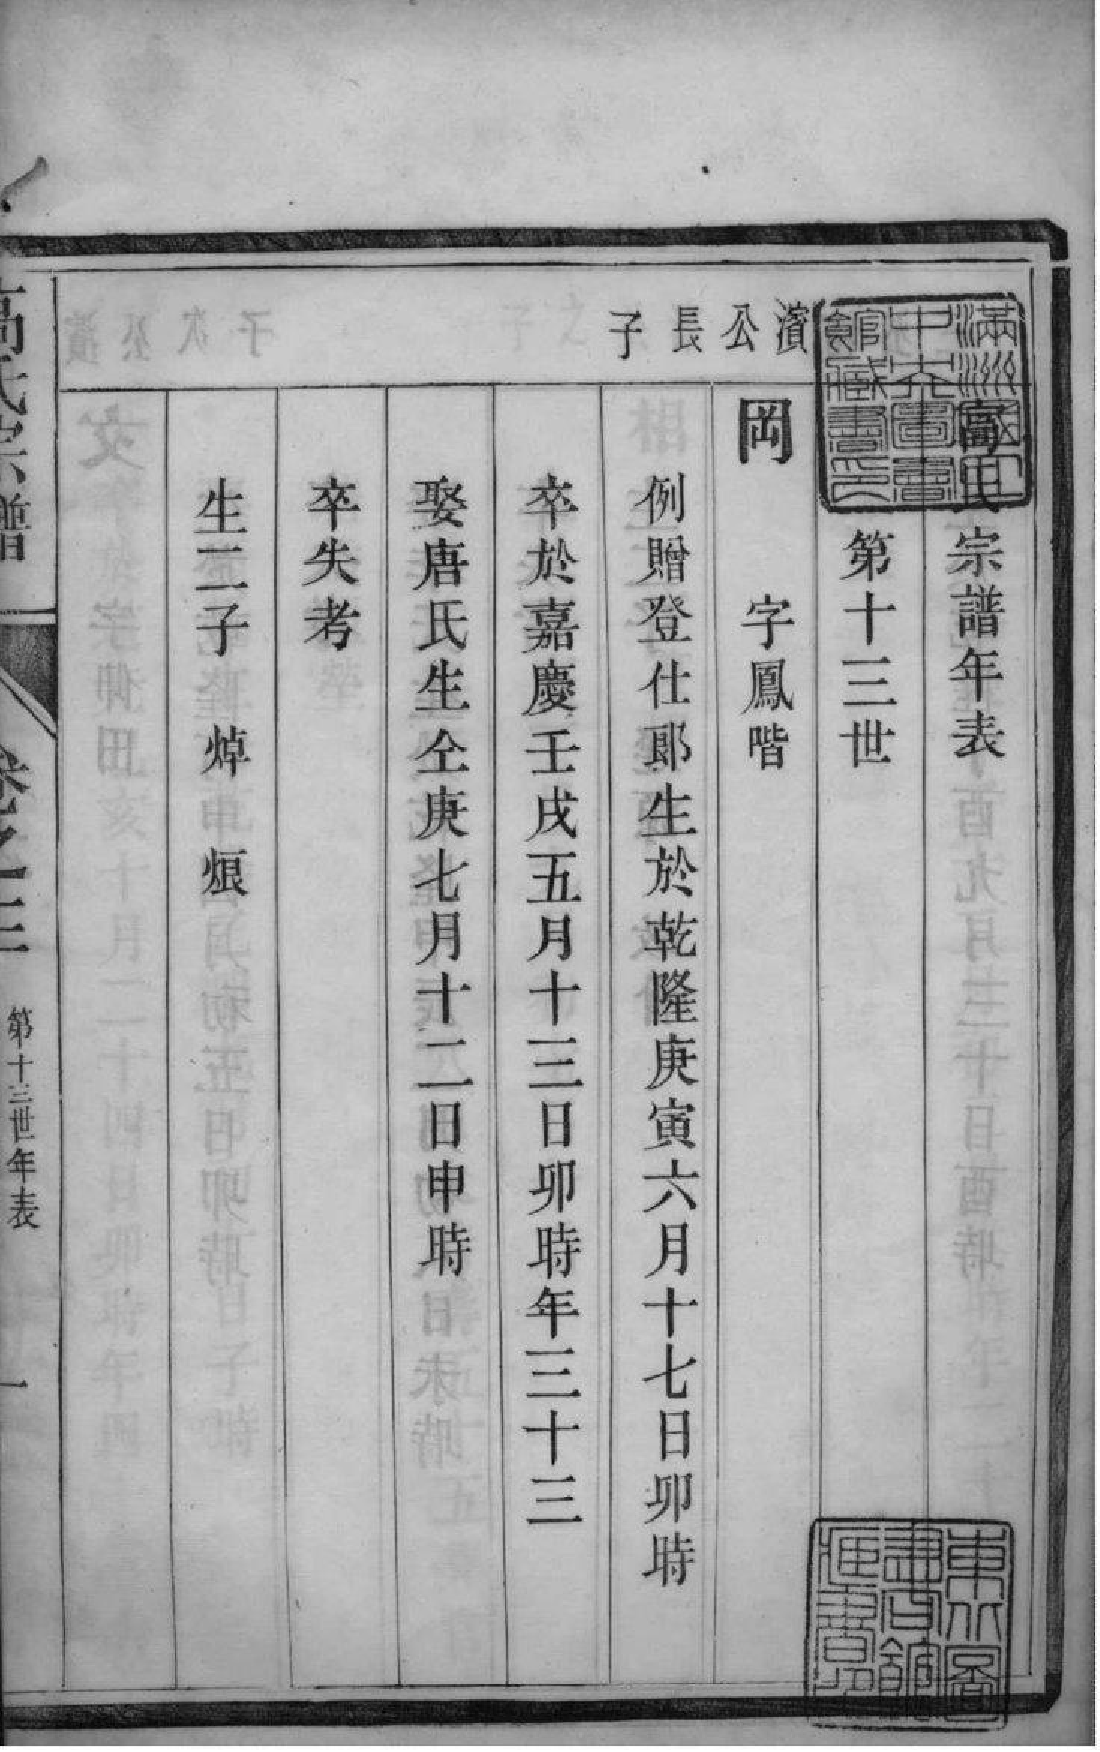 高氏宗譜年表
第十三世
濱公長子
岡　字鳳階
例贈登仕郎生於乾隆庚寅六月十七日卯時
卒於嘉慶壬戌五月十三日卯時年三十三
娶唐氏生仝庚七月十二日申時
卒失考
生二子　焯　烺
高氏宗譜
卷之三
第十三世年表
一
滿洲國立
中央圖書
館藏書印
東北圖
書館